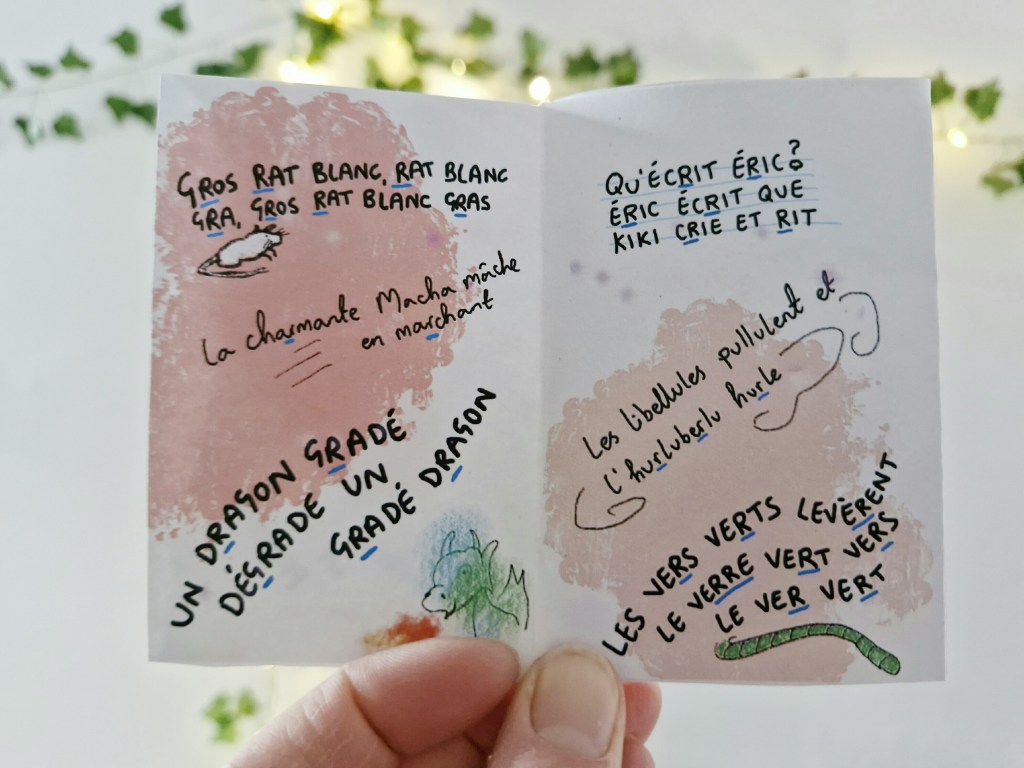 GROS RAT BLANC, RAT BLANC
GRA, GROS RAT BLANC GRAS
La charmante Macha mâche
en marchant
UN DRAGON GRADÉ
DÉGRADE UN
GRADÉ DRAGON
QU'ÉCRIT ÉRIC?
ÉRIC ÉCRIT QUE
KIKI CRIE ET RIT
Les libellules pullulent et
l'hurluberlu hurle
LES VERS VERTS LEVÈRENT
LE VERRE VERT VERS
LE VER VERT